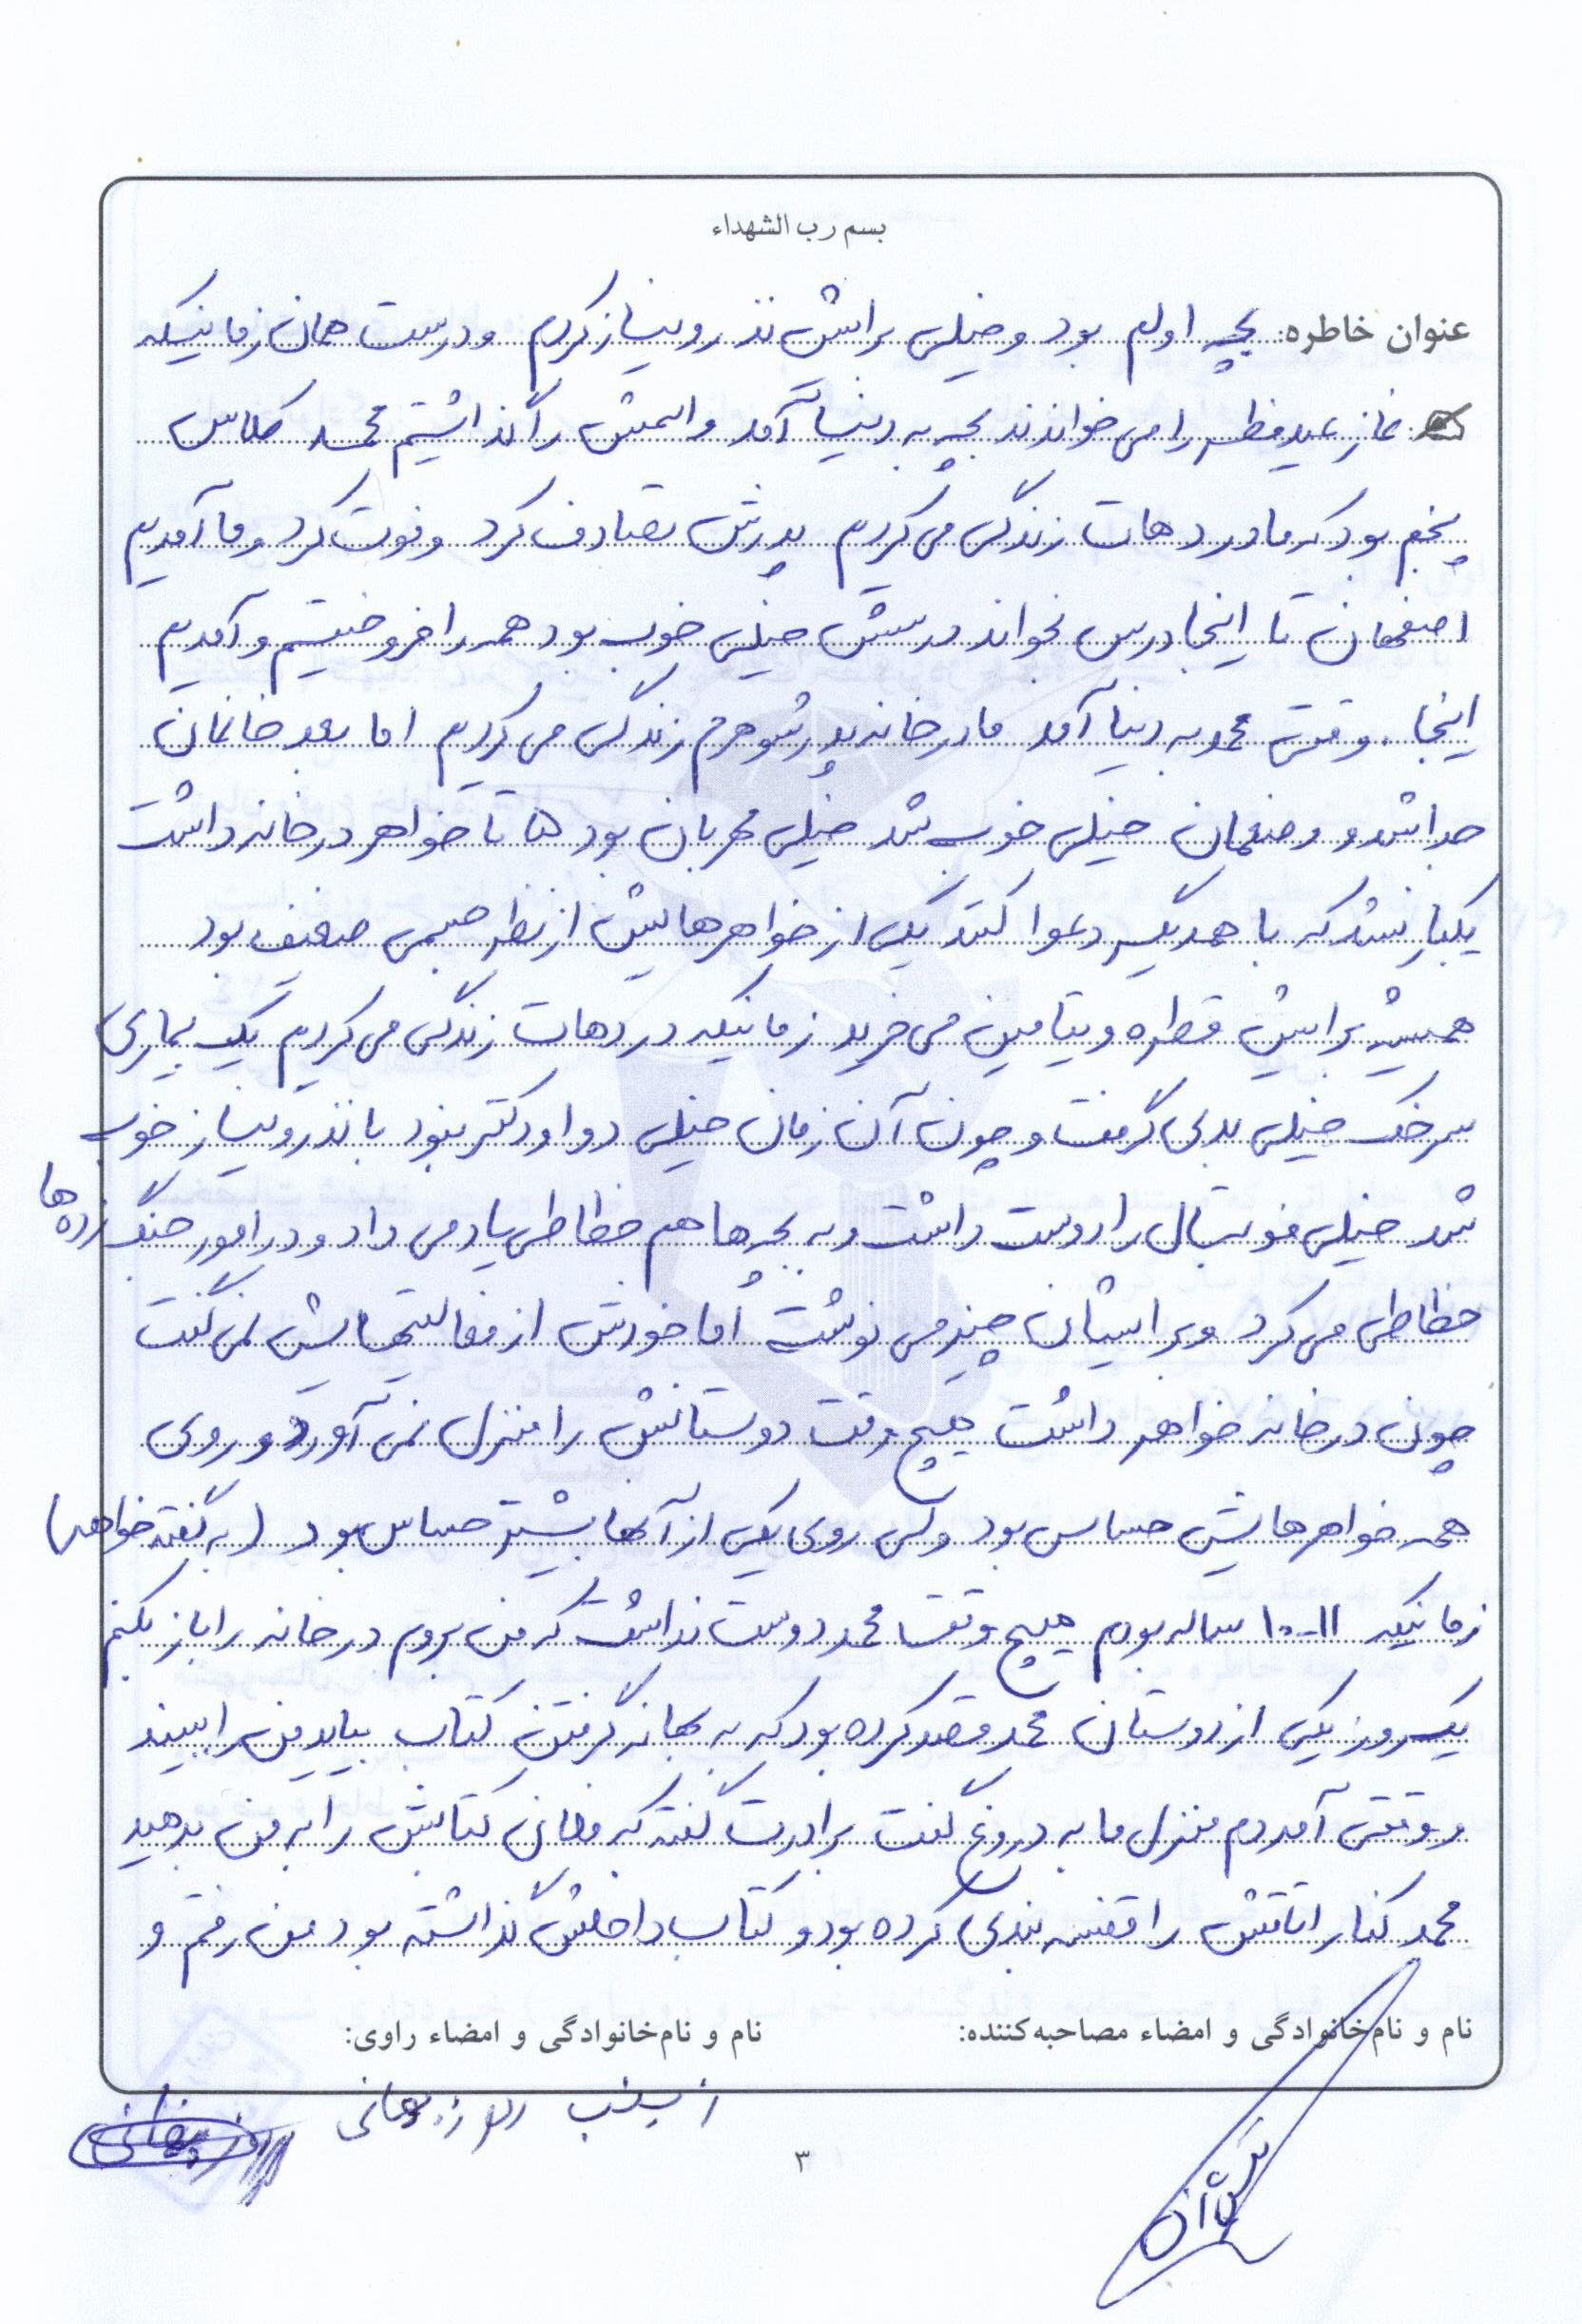 بسم رب الشهداء
عنوان خاطره: بچه اولم بود و خیلی برایش نذر و نیاز کردم و درست همان زمانیکه
نماز عید فطر را می خواندند بچه به دنیا آمد و اسمش را گذاشتیم محمد کلاس
پنجم بود که ما در دهات زندگی می کردیم پدرش تصادف کرد و فوت کرد و ما آمدیم
اصفهان تا اینجا درس بخواند درسش خیلی خوب بود همه را فروختیم و آمدیم
اینجا. وقتی محمد به دنیا آمد ما در خانه پدر شوهرم زندگی می کردیم اما بعد خانمان
جدا شد و وضعمان خیلی خوب شد خیلی مهربان بود تا خواهر در خانه داشت
یکبار نشد که با همدیگر دعوا کنند یکی از خواهرهایش از نظر جسمی ضعیف بود
همیشه برایش قطره ویتامین می خرید زمانیکه در دهات زندگی می کردیم یک بیماری
سرخک خیلی بدی گرفت و چون آن زمان خیلی دوا و دکتر نبود با نذر و نیاز خوب
شد خیلی فوتبال را دوست داشت و به بچه ها هم خطاطی یاد می داد و در امور جنگ زده ها
خطاطی می کرد و برایشان چیز می نوشت اما خودش از فعالیتهایش نمی گفت
چون در خانه خواهر داشت هیچ وقت دوستانش را منزل نمی آورد و روی
همه خواهرهایش حساس بود ولی روی یکی از آنها بیشتر حساس بود (به گفته خواهر)
زمانیکه ۱۱-۱۰ ساله بودم هیچ وقت محمد دوست نداشت که من بروم در خانه را باز بکنم
یک روز یکی از دوستان محمد قصد کرده بود که به بهانه گرفتن کتاب بیاید من را ببیند
وقتی آمد دم منزل ما به دروغ گفت برادرت گفته که فلانی کتابش را به من بدهید
محمد کنار اتاقش را قفسه بندی کرده بود و کتاب داخلش گذاشته بود من رفتم و
نام و نام‌خانوادگی و امضاء مصاحبه‌کننده:
نام و نام‌خانوادگی و امضاء راوی:
۳